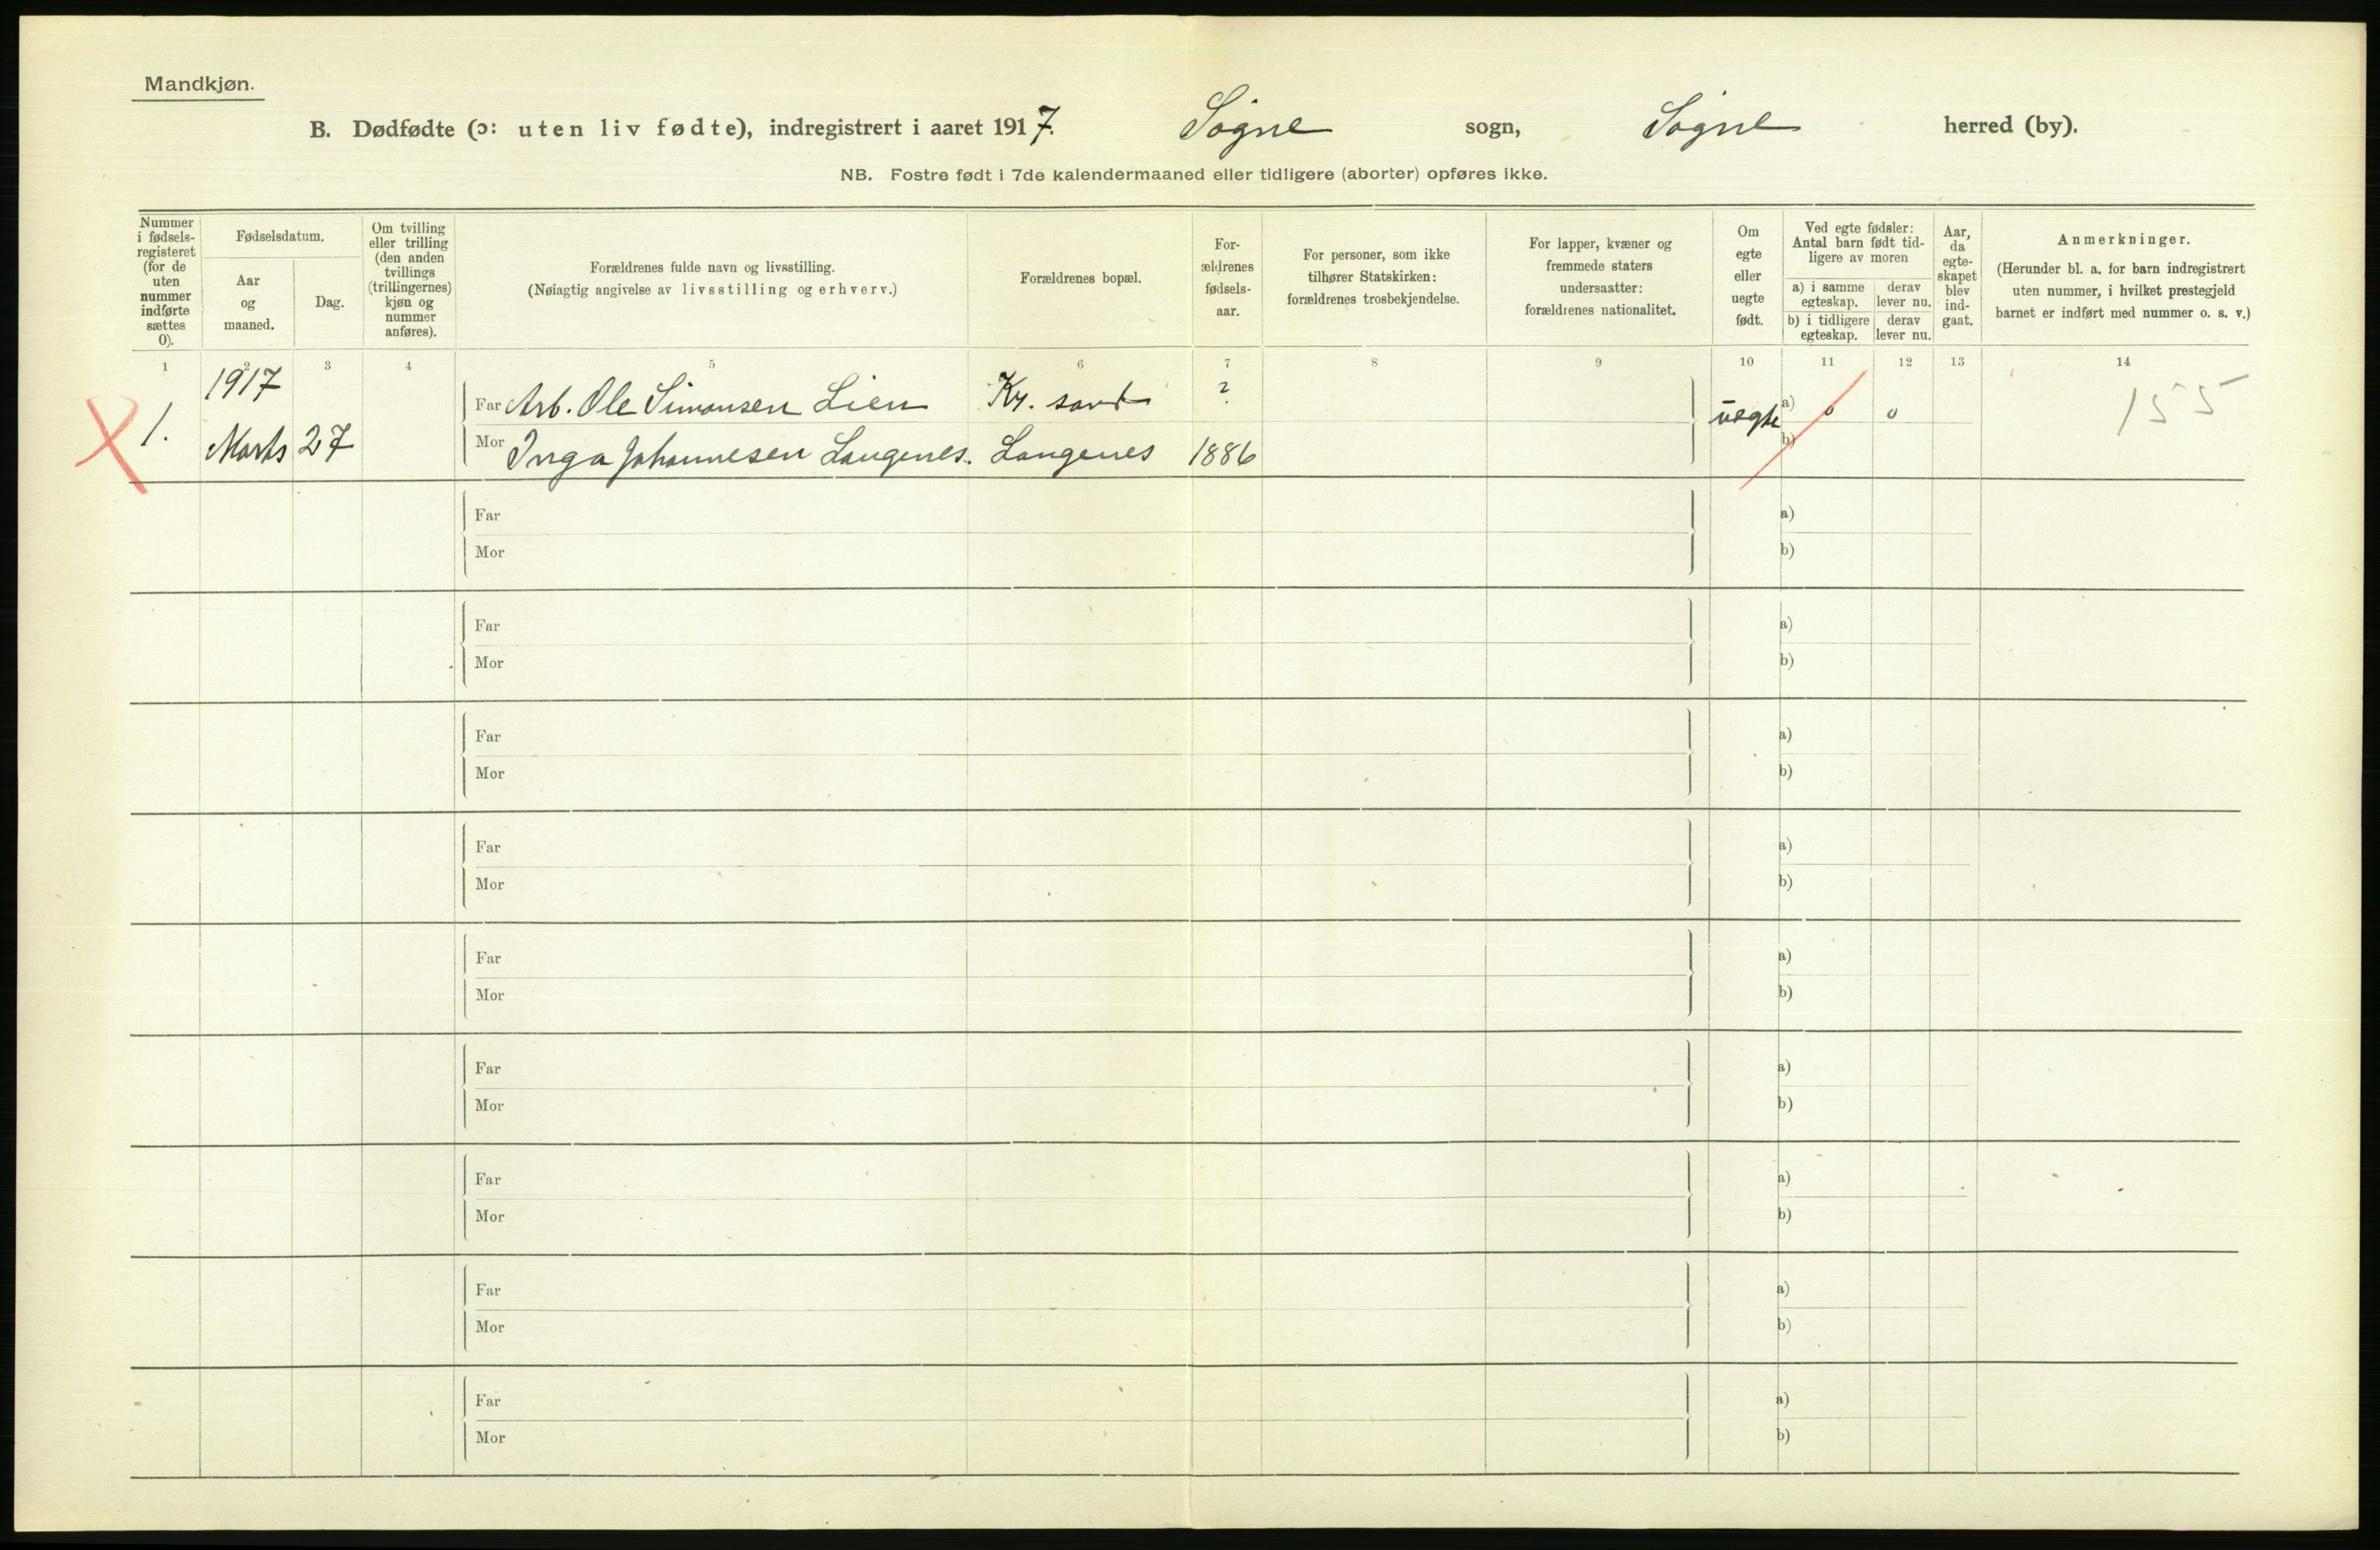 Mandkjøn.
B. Dødfødte (ɔ: uten liv fødte), indregistrert i aaret 1917. Søgne sogn, Søgne herred (by).
NB. Fostre født i 7de kalendermaaned eller tidligere (aborter) opføres ikke.
Nummer i fødsels-registeret (for de uten nummer indførte sættes 0).
Fødselsdatum.
Aar og maaned.
Dag.
Om tvilling eller trilling (den anden tvillings (trillingernes) kjøn og nummer anføres).
Forældrenes fulde navn og livsstilling.
(Nøiagtig angivelse av livsstilling og erhverv.)
Forældrenes bopæl.
For-ældrenes fødsels-aar.
For personer, som ikke tilhører Statskirken: forældrenes trosbekjendelse.
For lapper, kvæner og fremmede staters undersaatter: forældrenes nationalitet.
Om egte eller uegte født.
Ved egte fødsler: Antal barn født tid-ligere av moren
a) i samme egteskap.
derav lever nu.
b) i tidligere egteskap.
derav lever nu.
Aar, da egte-skapet blev ind-gaat.
Anmerkninger.
(Herunder bl. a. for barn indregistrert uten nummer, i hvilket prestegjeld barnet er indført med nummer o. s. v.)
1 2 3 4 5 6 7 8 9 10 11 12 13 14
1917
1. Far Arb. Ole Simonsen Lien Kr. sand ? uegte a) 0 0 155
Marts 27 Mor Inga Johannesen Langenes. Langenes 1886 b)
Far a)
Mor b)
Far a)
Mor b)
Far a)
Mor b)
Far a)
Mor b)
Far a)
Mor b)
Far a)
Mor b)
Far a)
Mor b)
Far a)
Mor b)
Far a)
Mor b)